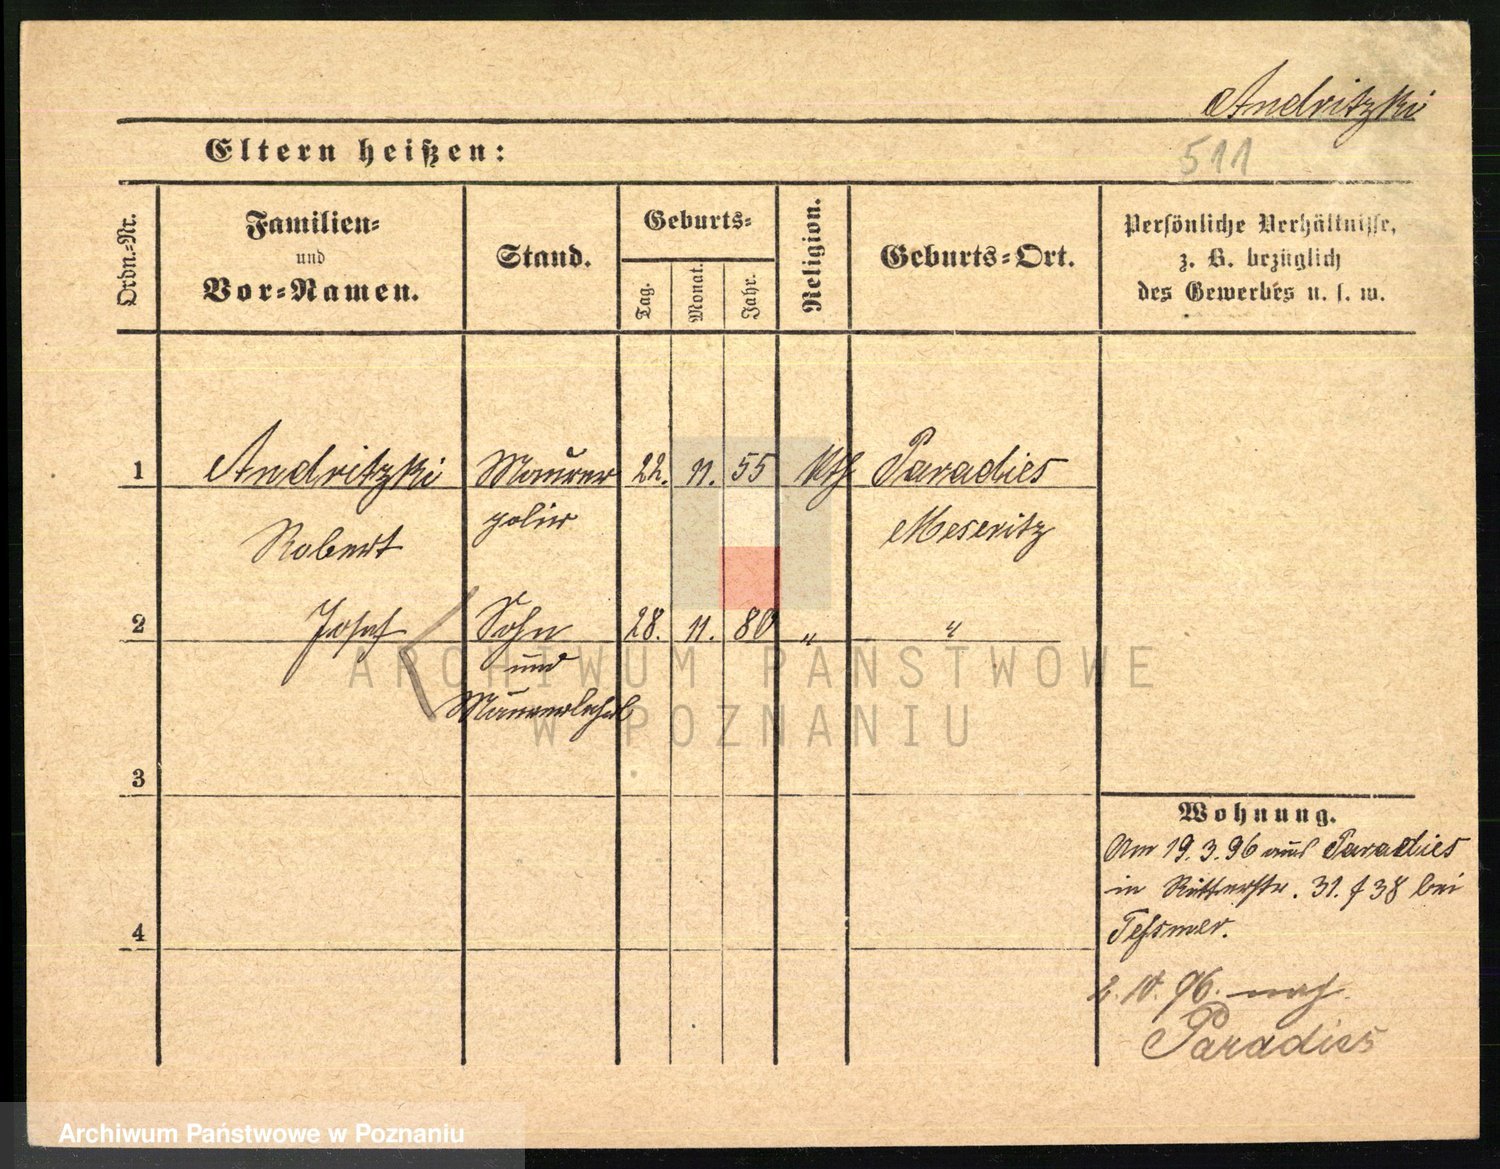 Andritzki
Eltern heißen:
511
Ordn.-Nr.
Familien-
und
Vor-Namen.
Stand.
Geburts-
Tag.
Monat.
Jahr.
Religion.
Geburts-Ort.
Persönliche Verhältnisse,
z. B. bezüglich
des Gewerbes u. s. w.
1 Andritzki Maurer 22. 11. 55 kth Paradies
Robert polier Meseritz
2 Josef Sohn 28. 11. 80 " "
und
Maurerlehrl
ARCHIWUM PAŃSTWOWE
W POZNANIU
3
4
Wohnung.
Am 19.3.96 aus Paradies
in Ritterstr. 31. 38 bei
Tessmer.
2. 10. 96. nach
Paradies
Archiwum Państwowe w Poznaniu